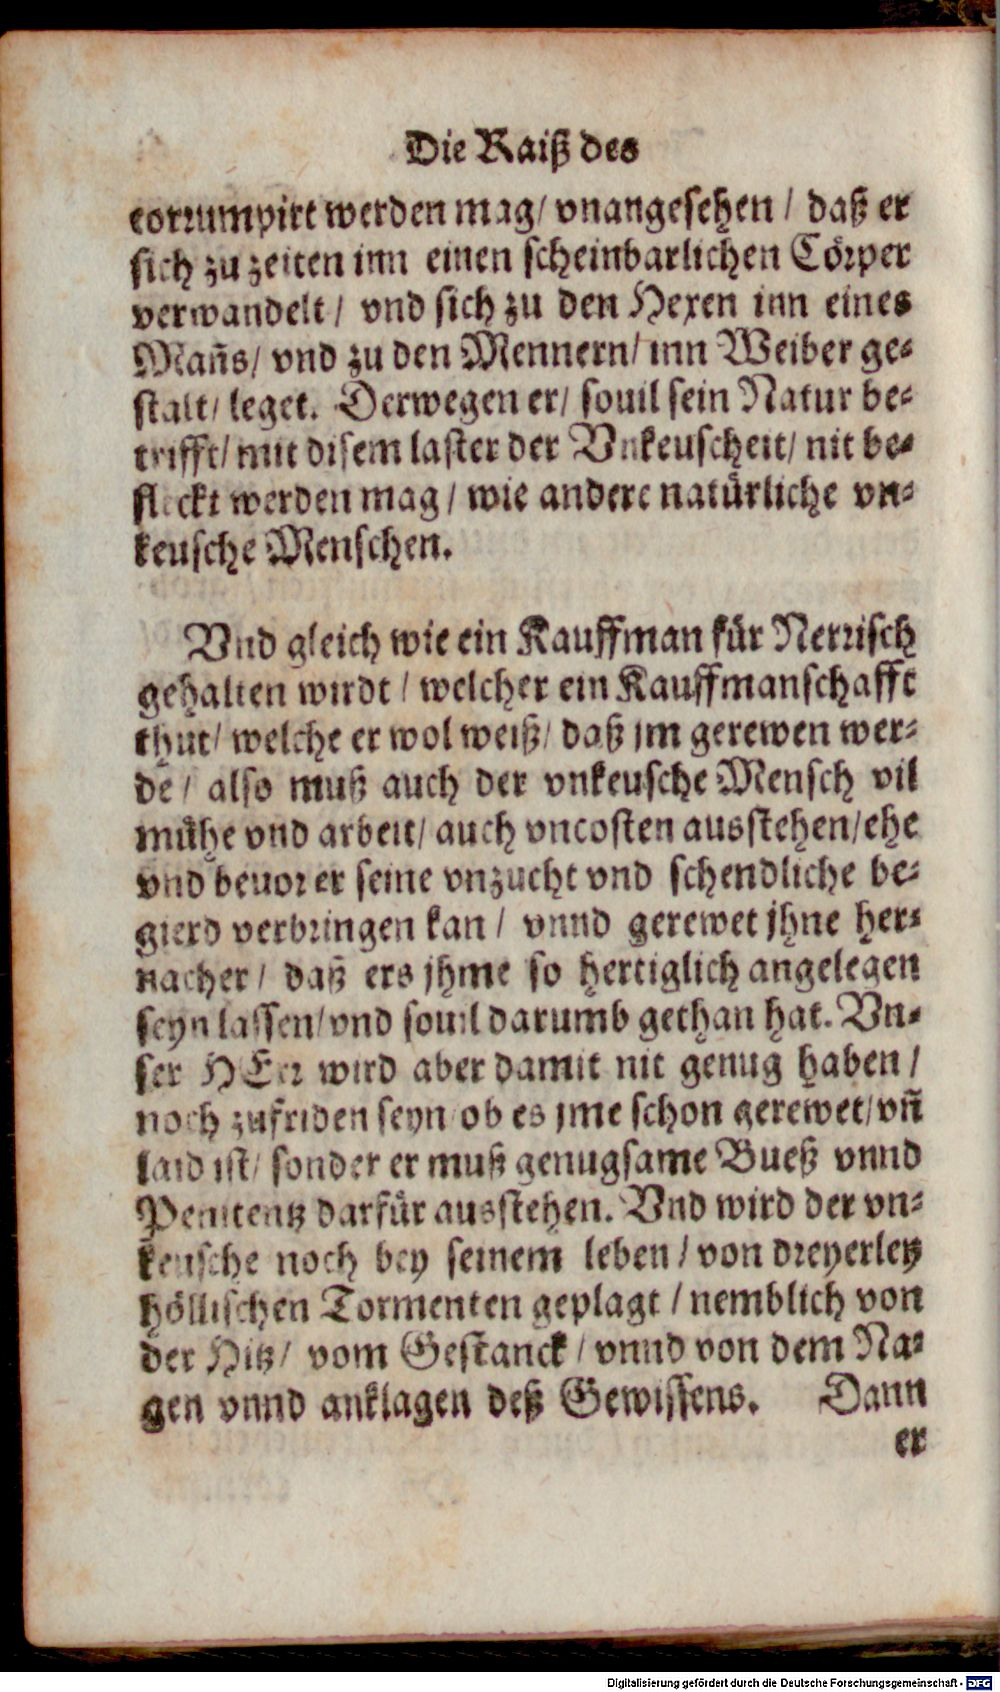 Die Raiß des
corrumpirt werden mag/ vnangesehen / daß er
sich zu zeiten inn einen scheinbarlichen Cörper
verwandelt / vnd sich zu den Hexen inn eines
Mañs/ vnd zu den Mennern/ inn Weiber ge-
stalt/ leget. Derwegen er/ souil sein Natur be-
trifft/ mit disem laster der Vnkeuscheit/ nit be-
fleckt werden mag / wie andere natürliche vn-
keusche Menschen.
Vnd gleich wie ein Kauffman für Nerrisch
gehalten wirdt / welcher ein Kauffmanschafft
thut/ welche er wol weiß/ daß jm gerewen wer-
de / also muß auch der vnkeusche Mensch vil
mühe vnd arbeit/ auch vncosten ausstehen/ ehe
vnd beuor er seine vnzucht vnd schendliche be-
gierd verbringen kan / vnnd gerewet jhne her-
nacher / daß ers jhme so hertiglich angelegen
seyn lassen/ vnd souil darumb gethan hat. Vn-
ser HErr wird aber damit nit genug haben /
noch zufriden seyn/ ob es jme schon gerewet/ vñ
laid ist/ sonder er muß genugsame Bueß vnnd
Penitentz darfür ausstehen. Vnd wird der vn-
keusche noch bey seinem leben / von dreyerley
höllischen Tormenten geplagt / nemblich von
der Hitz/ vom Gestanck / vnnd von dem Na-
gen vnnd anklagen deß Gewissens. Dann
er
Digitalisierung gefördert durch die Deutsche Forschungsgemeinschaft - DFG